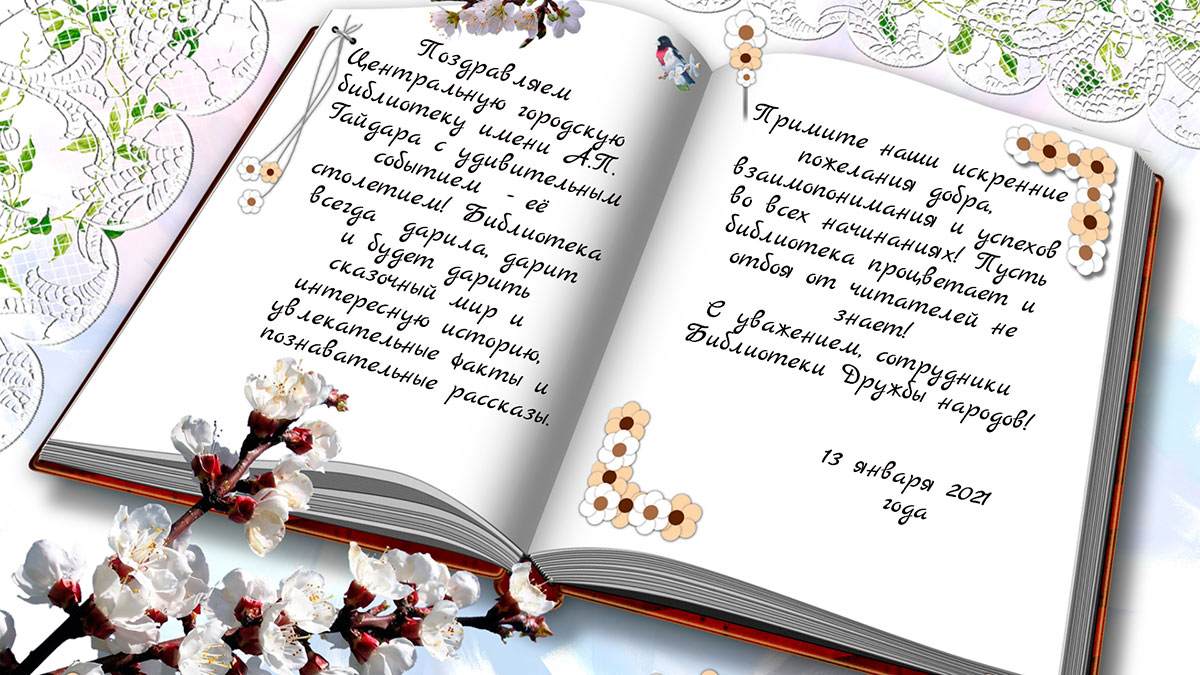 Поздравляем
Центральную городскую
библиотеку имени А.П.
Гайдара с удивительным
событием - её
столетием! Библиотека
всегда дарила, дарит
и будет дарить
сказочный мир и
интересную историю,
увлекательные факты и
познавательные рассказы.
Примите наши искренние
пожелания добра,
взаимопонимания и успехов
во всех начинаниях! Пусть
библиотека процветает и
отбоя от читателей не
знает!
С уважением, сотрудники
Библиотеки Дружбы народов!
13 января 2021
года